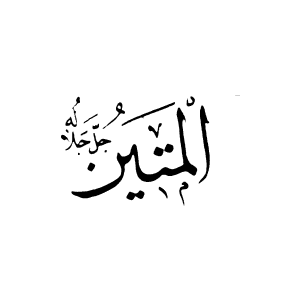 المتين جل جلاله